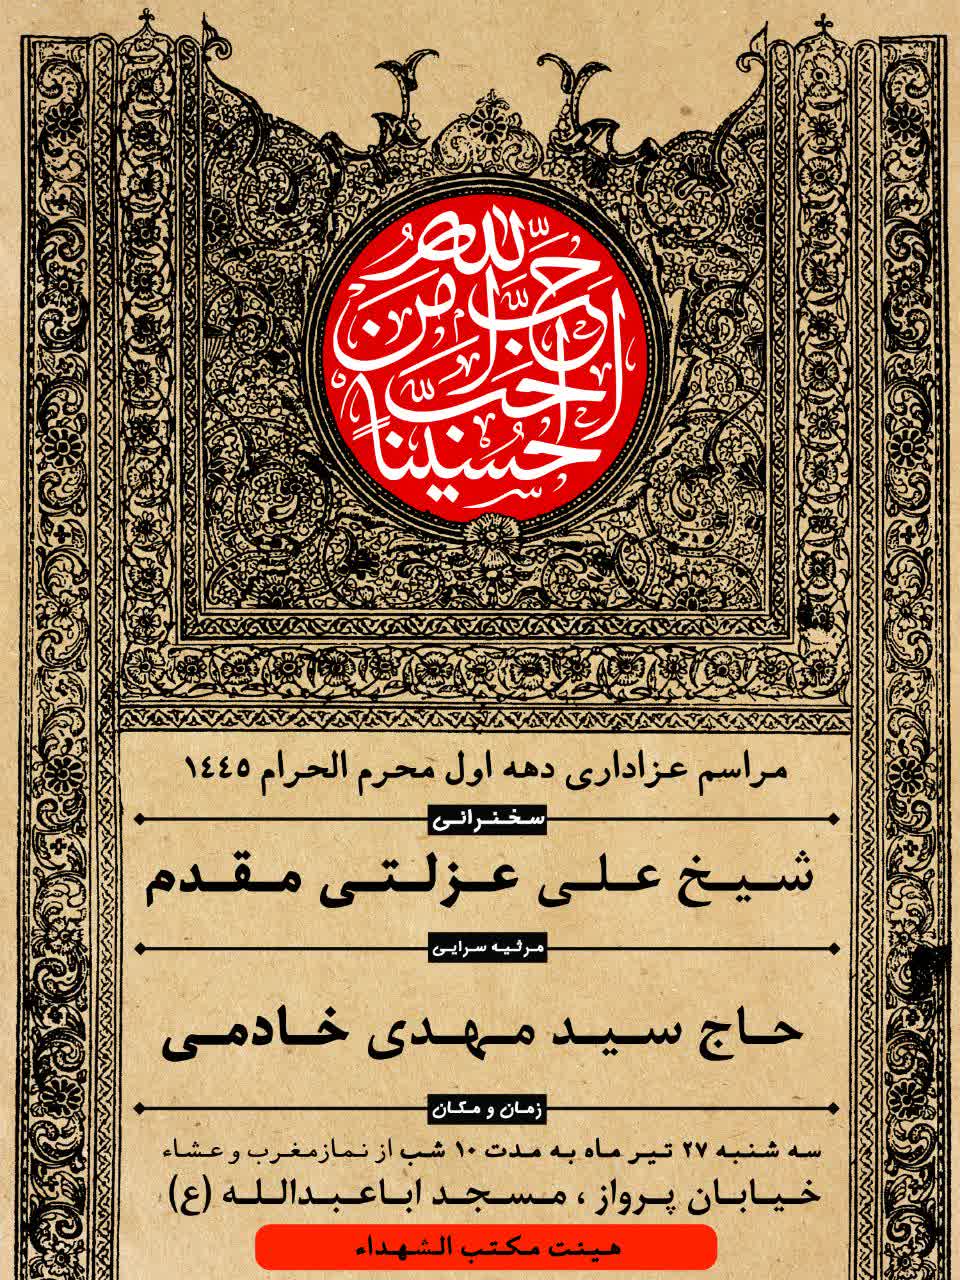 احب الله من احب حسینا
مراسم عزاداری دهه اول محرم الحرام ۱٤٤٥
سخنرانی
شیخ علی عزلتی مقدم
مرثیه سرایی
حاج سید مهدی خادمی
زمان و مکان
سه شنبه ۲۷ تیر ماه به مدت ۱۰ شب از نماز مغرب و عشاء
خیابان پرواز ، مسجد اباعبدالله (ع)
هیئت مکتب الشهداء